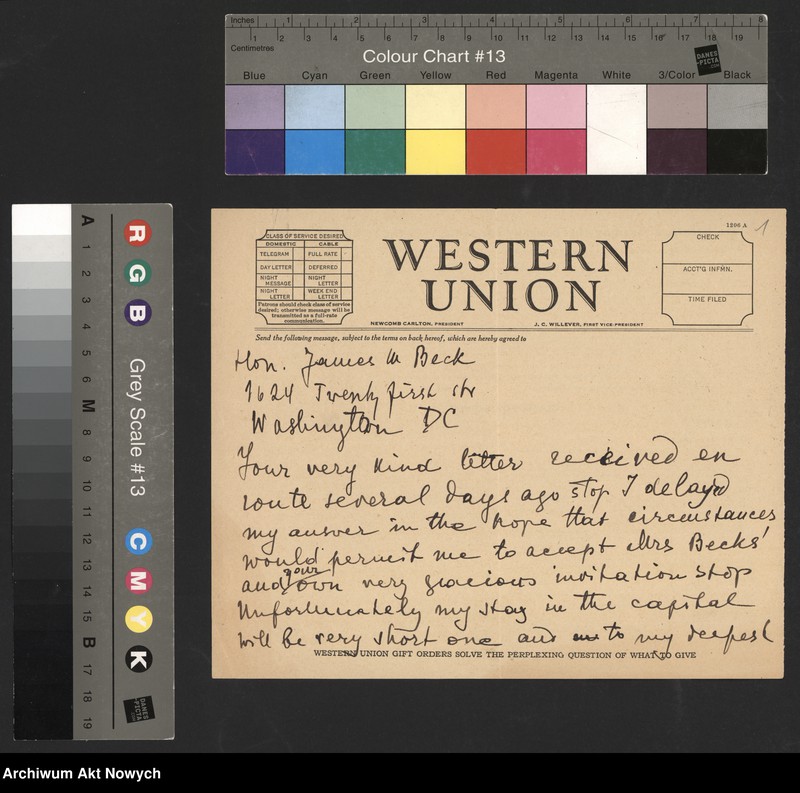 Inches 1 2 3 4 5 6 7 8
Centimetres 1 2 3 4 5 6 7 8 9 10 11 12 13 14 15 16 17 18 19
Colour Chart #13
DANES-PICTA.COM
Blue Cyan Green Yellow Red Magenta White 3/Color Black
A 1 2 3 4 5 6 M 8 9 10 11 12 13 14 15 B 17 18 19
R G B
Grey Scale #13
C M Y K
DANES-PICTA.COM
1206 A
1
CLASS OF SERVICE DESIRED
DOMESTIC CABLE
TELEGRAM FULL RATE
DAY LETTER DEFERRED
NIGHT MESSAGE NIGHT LETTER
NIGHT LETTER WEEK END LETTER
Patrons should check class of service
desired; otherwise message will be
transmitted as a full-rate
communication.
WESTERN
UNION
NEWCOMB CARLTON, PRESIDENT J. C. WILLEVER, FIRST VICE-PRESIDENT
CHECK
ACCT'G INFMN.
TIME FILED
Send the following message, subject to the terms on back hereof, which are hereby agreed to
Hon. James M Beck
1624 Twenty first str
Washington DC
Your very kind letter received en
route several days ago stop I delayed
my answer in the hope that circumstances
would permit me to accept Mrs Becks'
and your own very gracious invitation stop
Unfortunately my stay in the capital
will be very short one and to my deepest
WESTERN UNION GIFT ORDERS SOLVE THE PERPLEXING QUESTION OF WHAT TO GIVE
Archiwum Akt Nowych